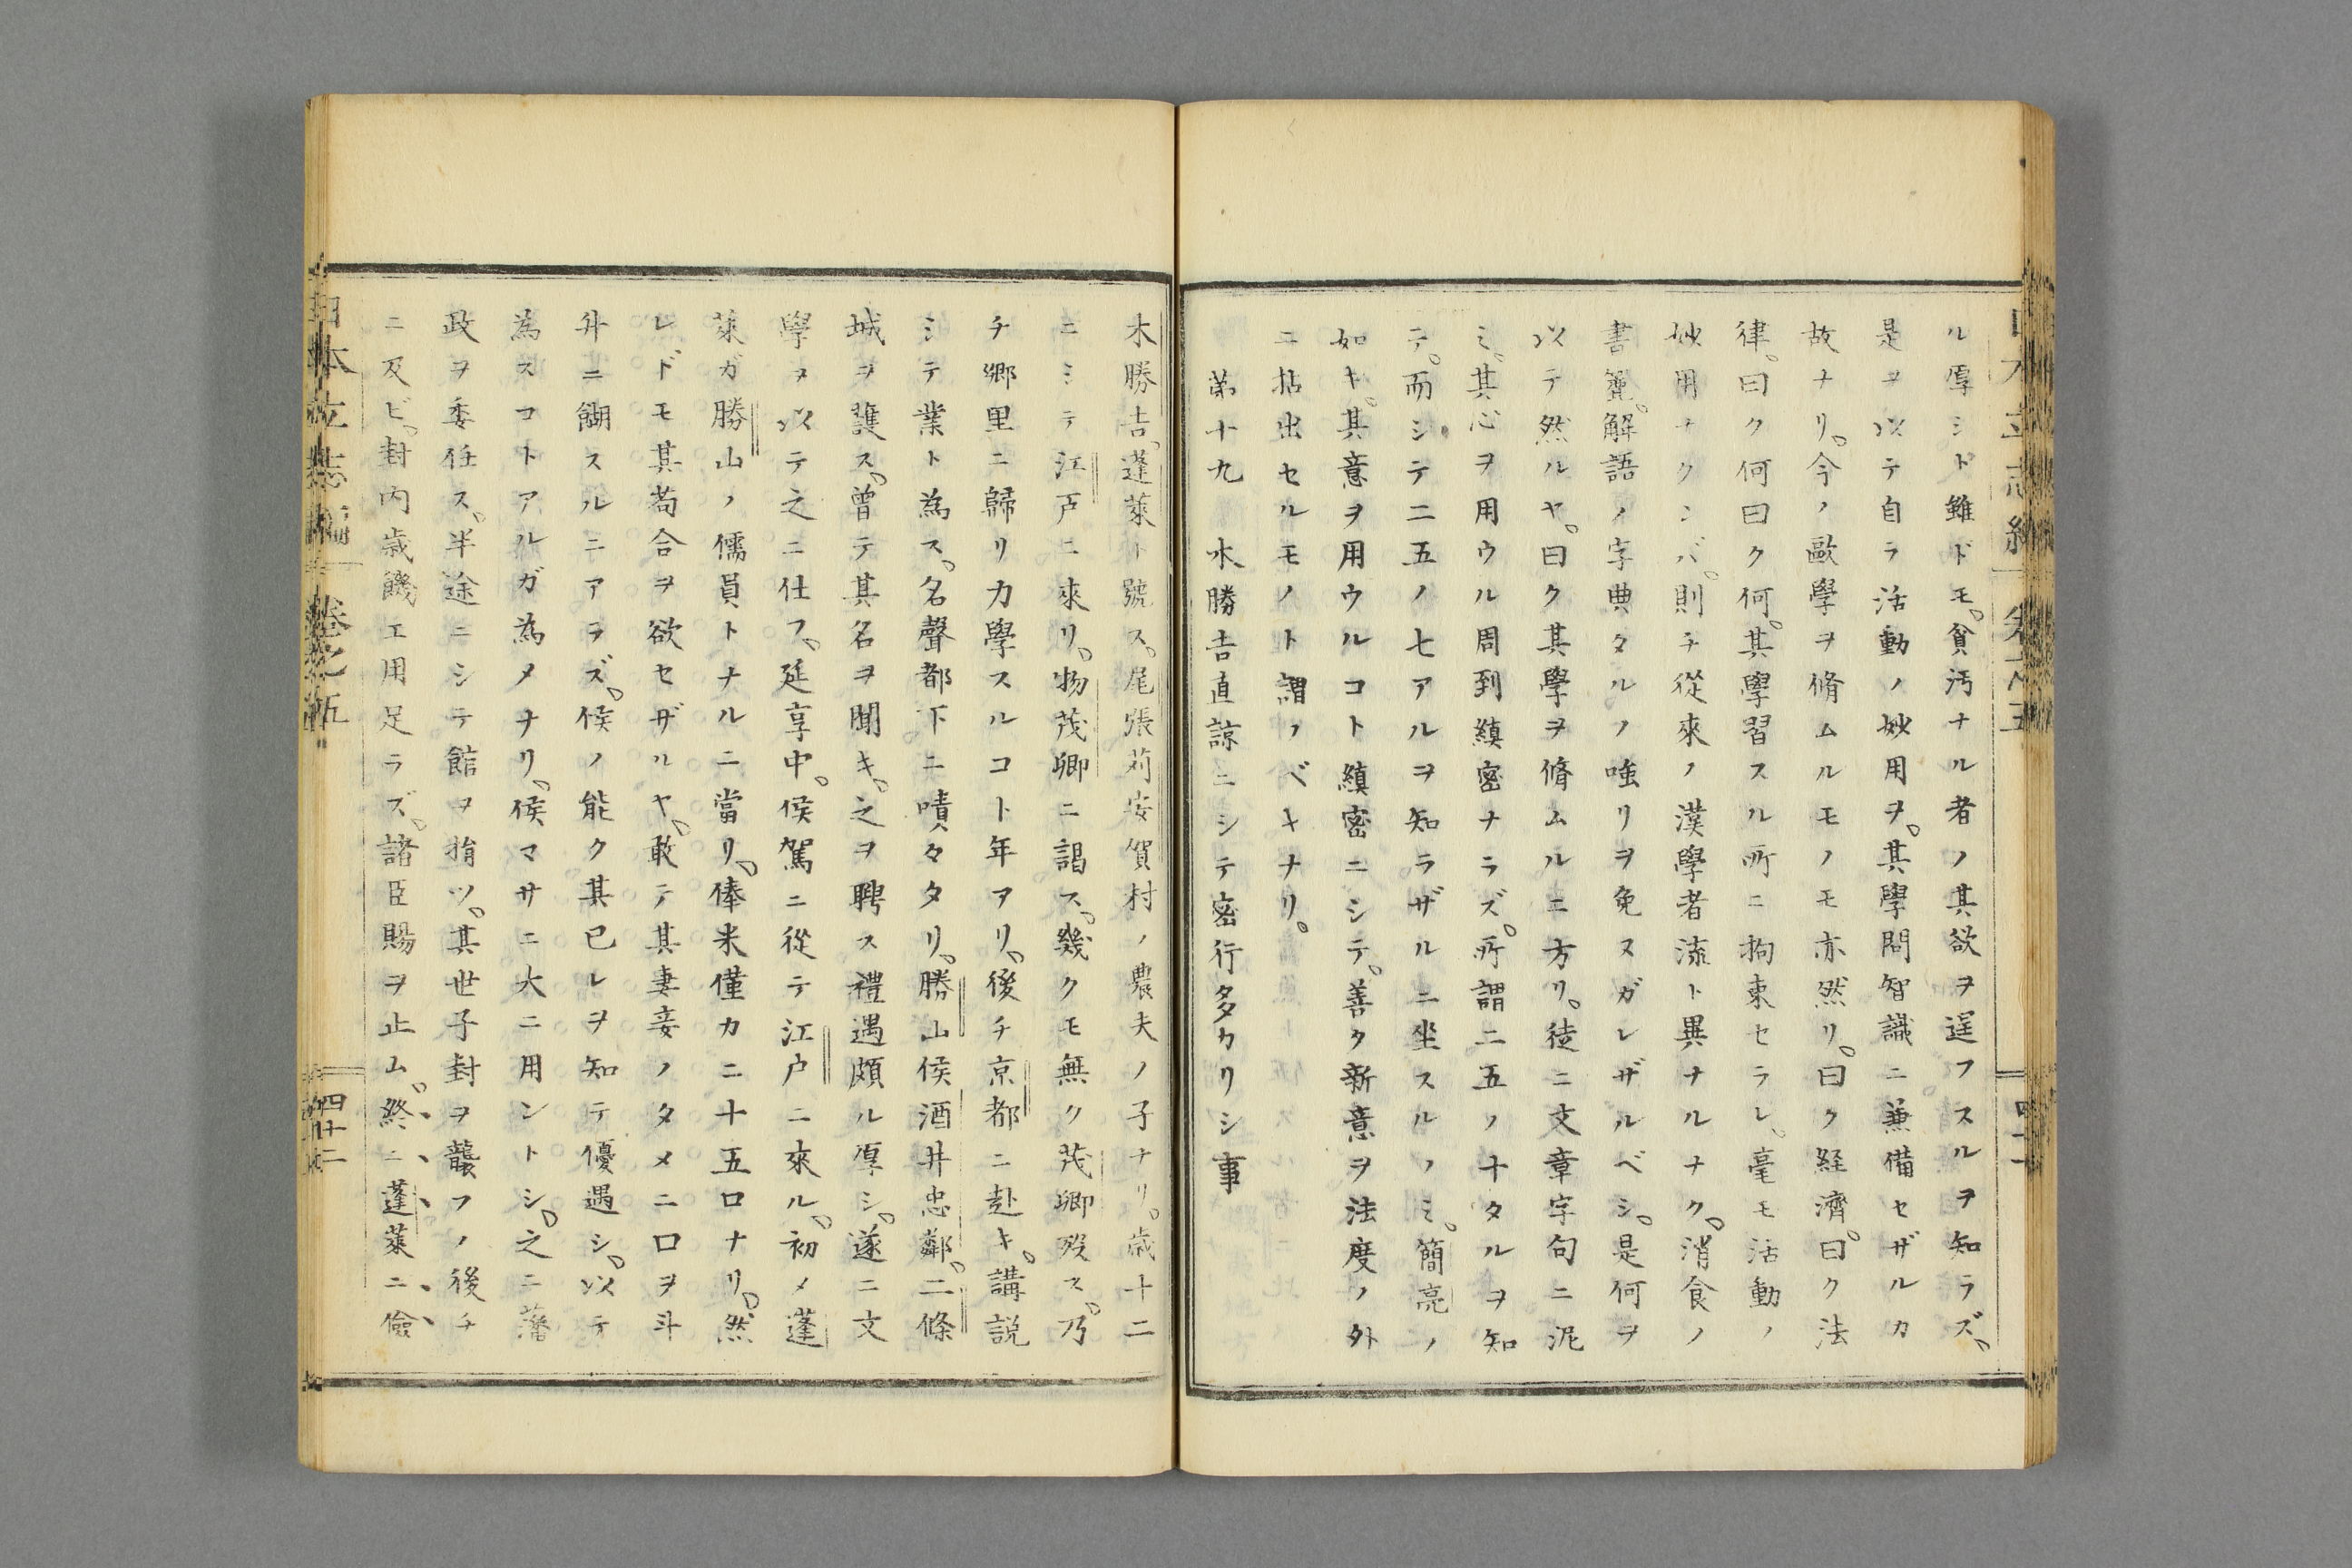 ル厚シト雖ドモ。貪汚ナル者ノ其欲ヲ逞フスルヲ知ラズ、
是ヲ以テ自ラ活動ノ妙用ヲ。其學問智識ニ兼備セザルカ
故ナリ。今ノ歐學ヲ脩ムルモノモ亦然リ。曰ク経濟。曰ク法
律。曰ク何曰ク何。其學習スル所ニ拘束セラレ。毫モ活動ノ
妙用ナクンバ。則チ從來ノ漢學者流ト異ナルナク。消食ノ
書簏。解語ノ字典タルノ嗤リヲ免スガレザルベシ。是何ヲ
以テ然ルヤ。曰ク其學ヲ脩ムルニ方リ。徒ニ文章字句ニ泥
ミ。其心ヲ用ウル周到縝密ナラズ。所謂二五ノ十タルヲ知
テ。而シテ二五ノ七アルヲ知ラザルニ坐スルノミ。簡亮ノ
如キ。其意ヲ用ウルコト縝密ニシテ。善ク新意ヲ法度ノ外
ニ拈出セルモノト謂ノベキナリ。
第十九 木勝吉直諒ニシテ密行多カリシ事
木勝吉。蓬萊ト號ス。尾張苅安賀村ノ農夫ノ子ナリ。歳十二
ニシテ江戸ニ來リ。物茂卿ニ謁ス。幾クモ無ク茂卿歿ス。乃
チ郷里ニ歸リ力學スルコト年アリ。後チ京都ニ赴キ。講説
シテ業ト為ス。名聲都下ニ嘖々タリ。勝山侯酒井忠鄰。二條
城ヲ護ス。曾テ其名ヲ聞キ。之ヲ聘ス禮遇頗ル厚シ。遂ニ文
學ヲ以テ之ニ仕フ。延享中。侯駕ニ從テ江戸ニ來ル。初メ蓬
萊ガ勝山ノ儒員トナルニ當リ。俸米僅カニ十五口ナリ。然
レドモ其苟合ヲ欲セザルヤ。敢テ其妻妾ノタメニ口ヲ斗
升ニ餬スルニアラズ。侯ノ能ク其已レヲ知テ優遇シ。以テ
為スコトアルガ為メナリ。侯マサニ大ニ用ントシ。之ニ藩
政ヲ委任ス。半途ニシテ館ヲ捐ツ。其世子封ヲ襲フノ後チ
ニ及ビ。封内歳饑エ用足ラズ。諸臣賜ヲ止ム。終ニ蓬萊ニ儉
日本立志編 卷之五 四十二